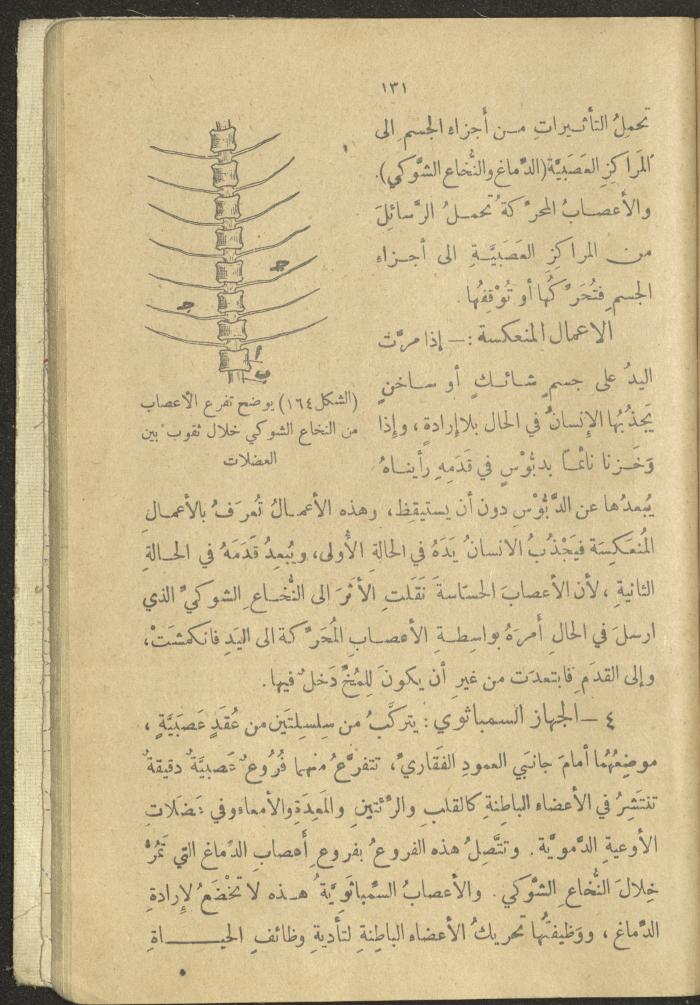 ١٣١
تحمِلُ التأثـيراتِ مـن أجزاءِ الجسمِ الى
المَراكزِ العَصَبيَّة (الدِّماغ والنُّخاع الشَّوكي).
والأعصـابُ المحرِّكة تُحمـلُ الرَّسائِلَ
من المراكزِ العصَبيَّـةِ الى أجـزاءِ
الجسمِ فتُحَرِّكُها أو تُوْقِفُها.
الاعمال المنعكسة : — إذا مرَّت
اليدُ على جسمٍ شائـكٍ أو سـاخنٍ
يَجذُبُها الإنسانُ في الحال بلا إرادةٍ ، وإذا
وَخَـزنا نائمـاً بدبُّوْسٍ في قَدَمِهِ رأينـاهُ
يُبعدُها عن الدَّبُّوْسِ دون أن يستيقِظ ، وهذه الأعمـالُ تُعرَفُ بالأعمـالِ
المُنعَكِسَة فيَجْذُبُ الانسانُ يَدَهُ في الحالةِ الأُولى، ويُبعِدُ قَدَمَهُ في الحـالةِ
الثانيةِ ، لأن الأعصابَ الحسّاسةَ نَقَلَتِ الأثرَ الى النُّخـاعِ الشوكيِّ الذي
ارسلَ في الحالِ أمرَهُ بواسِطـةِ الأعصـابِ المُحَرِّكة الى اليَدِ فانكمشَتْ،
وإلى القدَمِ فابتعدَت من غيرِ أن يكونَ للمُخِّ دَخلٌ فيها.
٤ — الجهاز السمباثوي : يتركَّبُ من سِلسِلتَين من عُقَدٍ عَصَبَيَّةٍ ،
موضِعُهُما أمامَ جانبَي العمودِ الفَقَاريِّ، تتفرَّعُ منهما فُرُوعٌ عَصبيَّةٌ دقيقةٌ
تنتَشِرُ في الأعضاء الباطِنةِ كالقلبِ والرِّئتينِ والمَعِدَةِ والأمعاءِ وفي عَضَلاتِ
الأوعيةِ الدَّمويَّة . وتتَّصِلُ هذه الفروعُ بفروعِ أعصابِ الدِّماغ التي تَمُرُّ
خِلالَ النُّخاعِ الشَّوكي . والأعصابُ السِّمباثَويَّةُ هـذه لا تَخْضَعُ لإرادةِ
الدِّماغ ، ووَظيفتُها تحريكُ الأعضاءِ الباطِنةِ لتأديةِ وظائفِ الحيـــــاةِ
ج
ج
أ
ب
(الشكل ١٦٤) يوضح تفرع الأعصاب
من النخاع الشوكي خلال ثقوب بين
العضلات